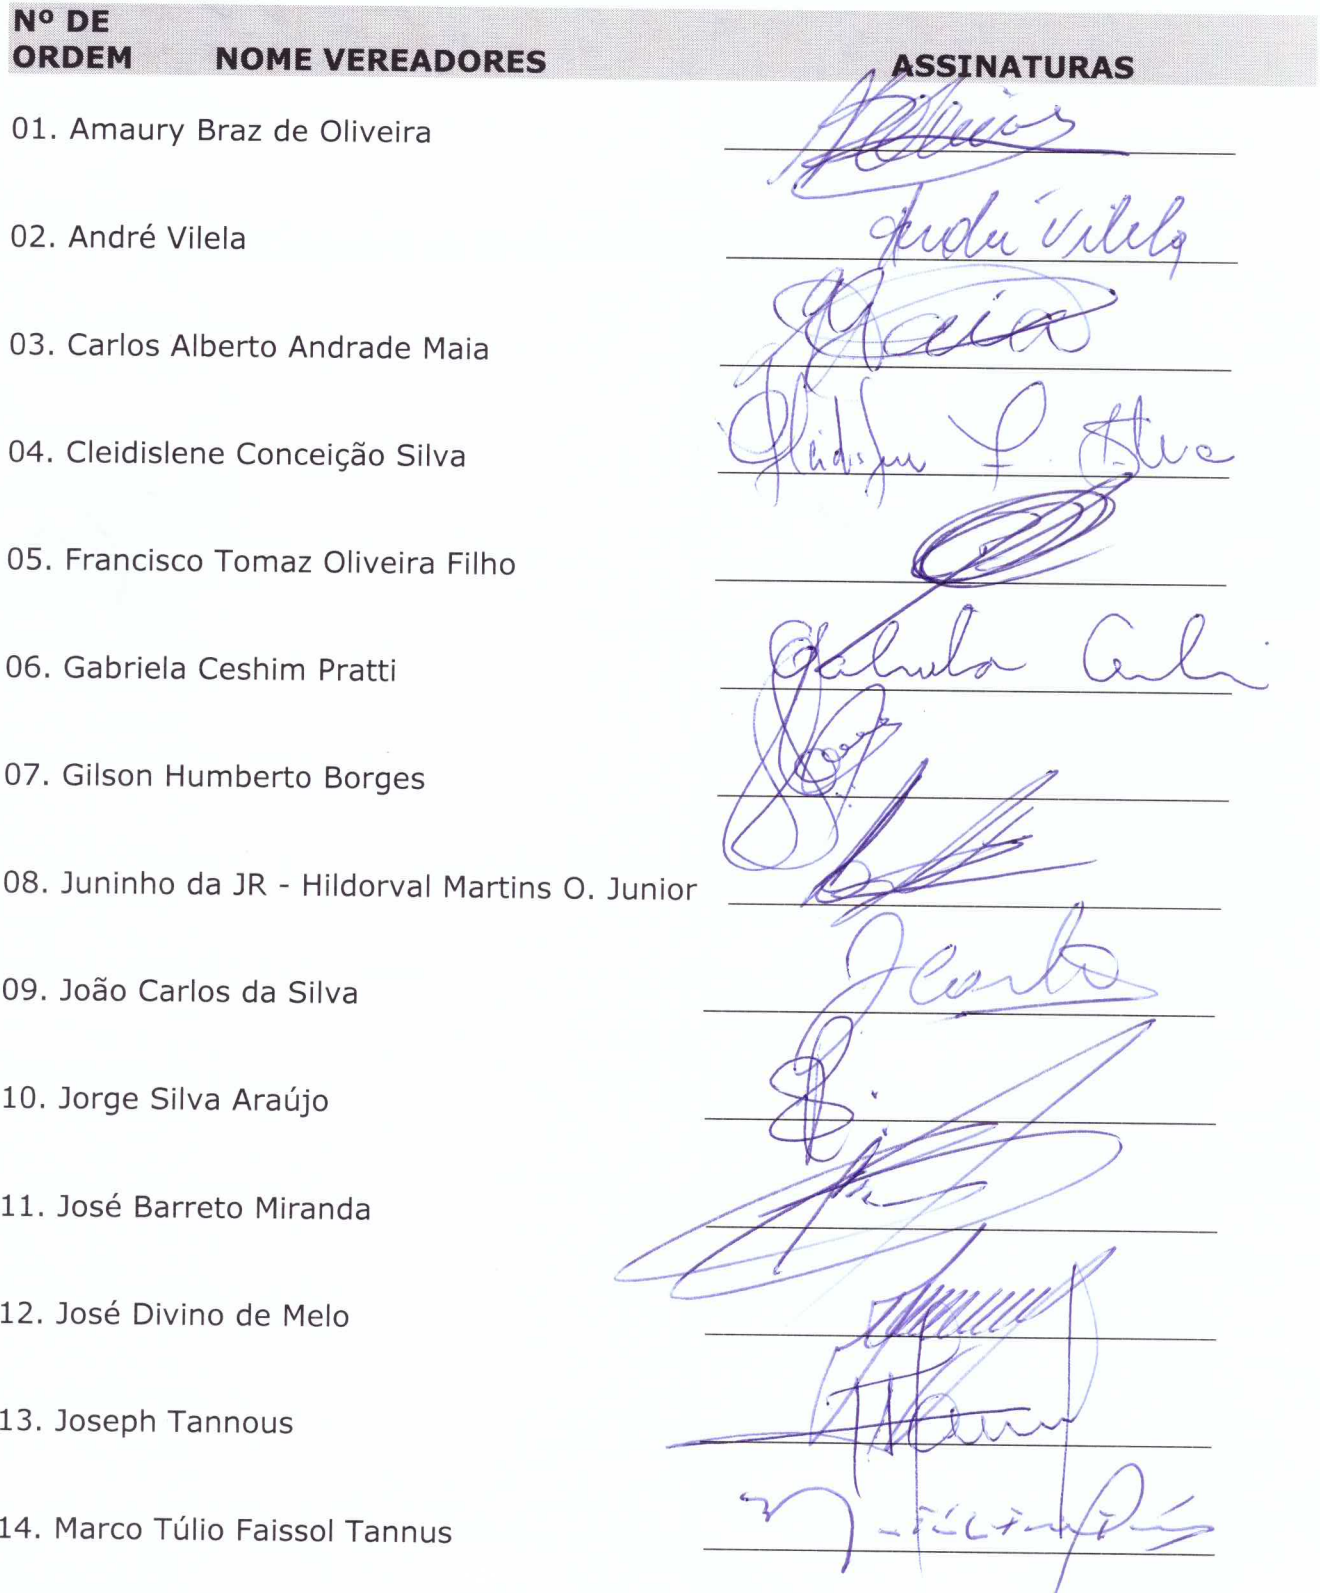 Nº DE
ORDEM NOME VEREADORES ASSINATURAS
01. Amaury Braz de Oliveira
02. André Vilela André Vilela
03. Carlos Alberto Andrade Maia Maia
04. Cleidislene Conceição Silva Silva
05. Francisco Tomaz Oliveira Filho
06. Gabriela Ceshim Pratti Gabriela
07. Gilson Humberto Borges
08. Juninho da JR - Hildorval Martins O. Junior
09. João Carlos da Silva J Carlos
10. Jorge Silva Araújo
11. José Barreto Miranda
12. José Divino de Melo
13. Joseph Tannous
14. Marco Túlio Faissol Tannus